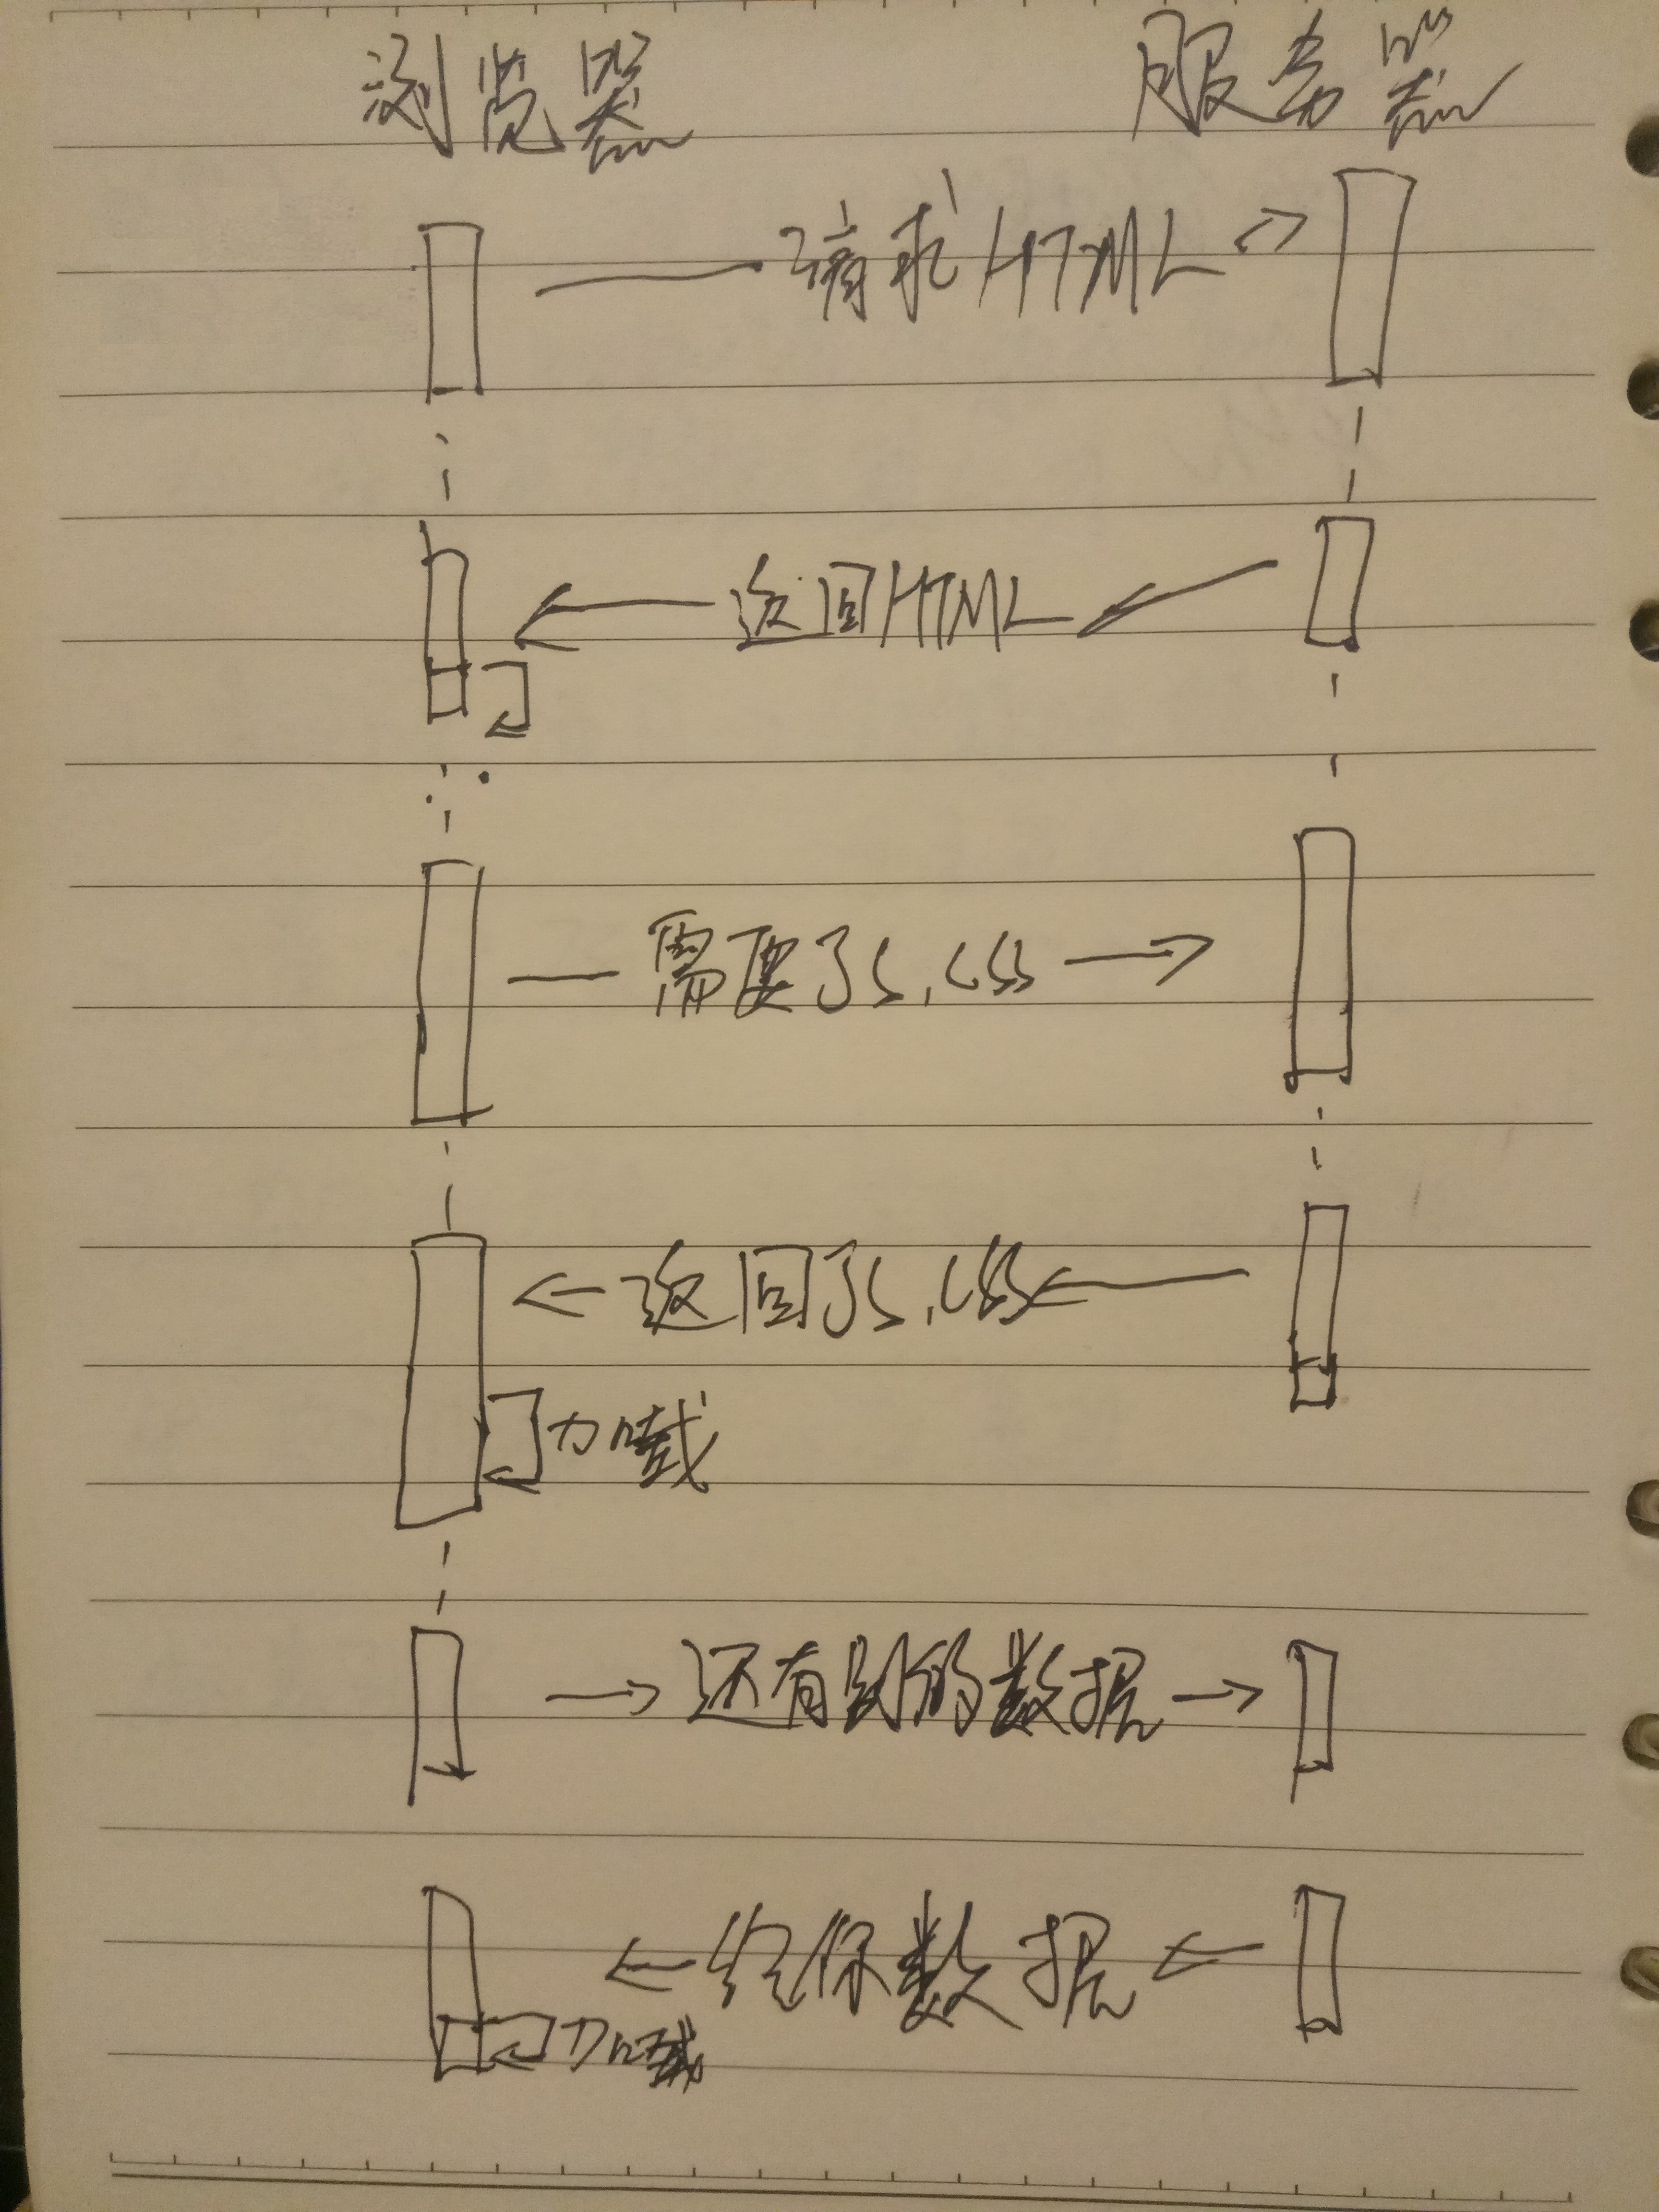 浏览器 服务器
请求HTML
返回HTML
需要JS,CSS
返回JS,CSS
加载
还有别的数据
给你数据
加载